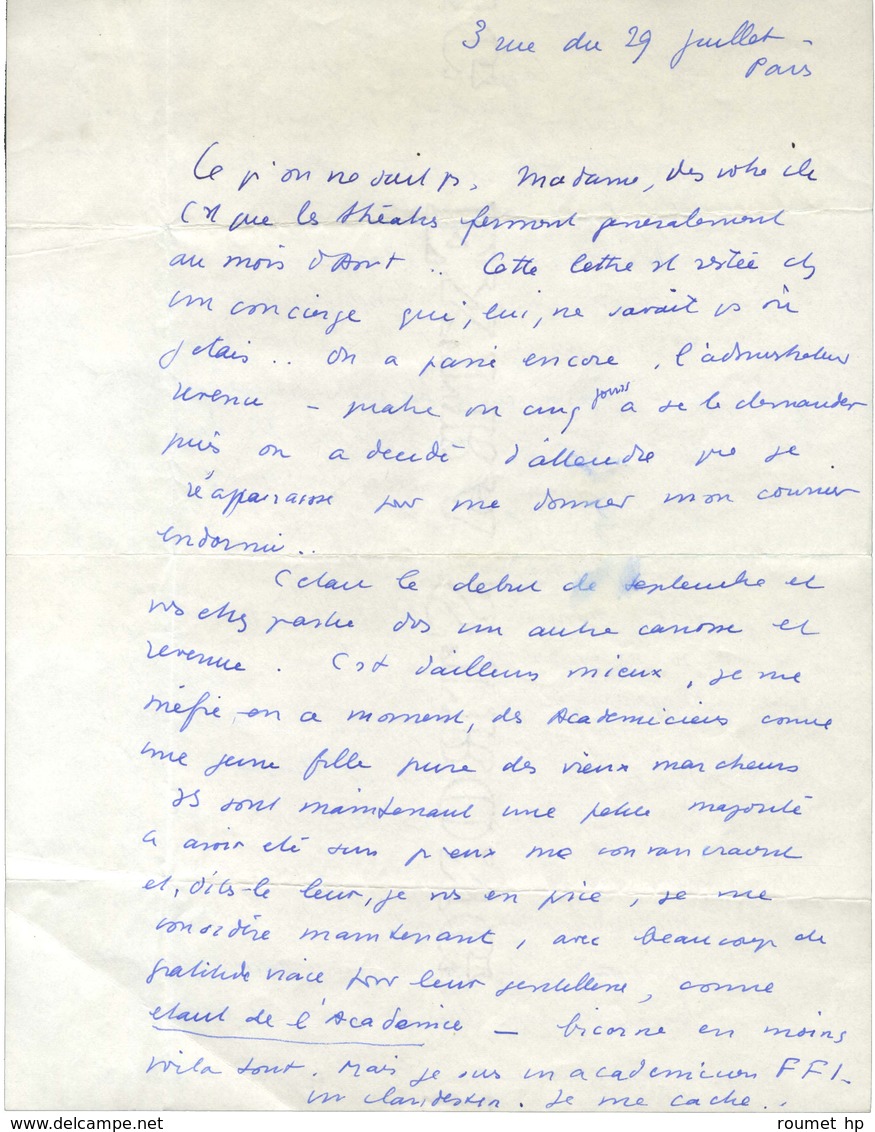 3 rue du 29 juillet -
Paris
Ce qu'on ne sait ps, Madame, des votre ile
c'st que les théatres ferment generalement
au mois d'Aout .. Cette lettre st restée chz
un concierge qui, lui, ne savait ps où
j'etais .. On a passé encore, l'administrateur
revenu - quatre ou cinq jours a se le demander
puis on a decidé d'attendre que je
réapparaisse pour me donner mon courrier
endormi ..
C'etait le debut de septembre et
vs etiez partie ds un autre carrosse et
revenue. C'st d'ailleurs mieux, je me
méfie, en ce moment, des Academiciens comme
une jeune fille pure des vieux marcheurs
Ils sont maintenant une petite majorité
a avoir été surs qu'eux me convaincraient
et, dites-le leur, je vs en prie, je me
considère maintenant, avec beaucoup de
gratitude vraie pour leur gentillesse, comme
etant de l'Academie - bicorne en moins
voila tout. Mais je suis un academicien FFI -
un clandestin. Je me cache ..
roumet hp